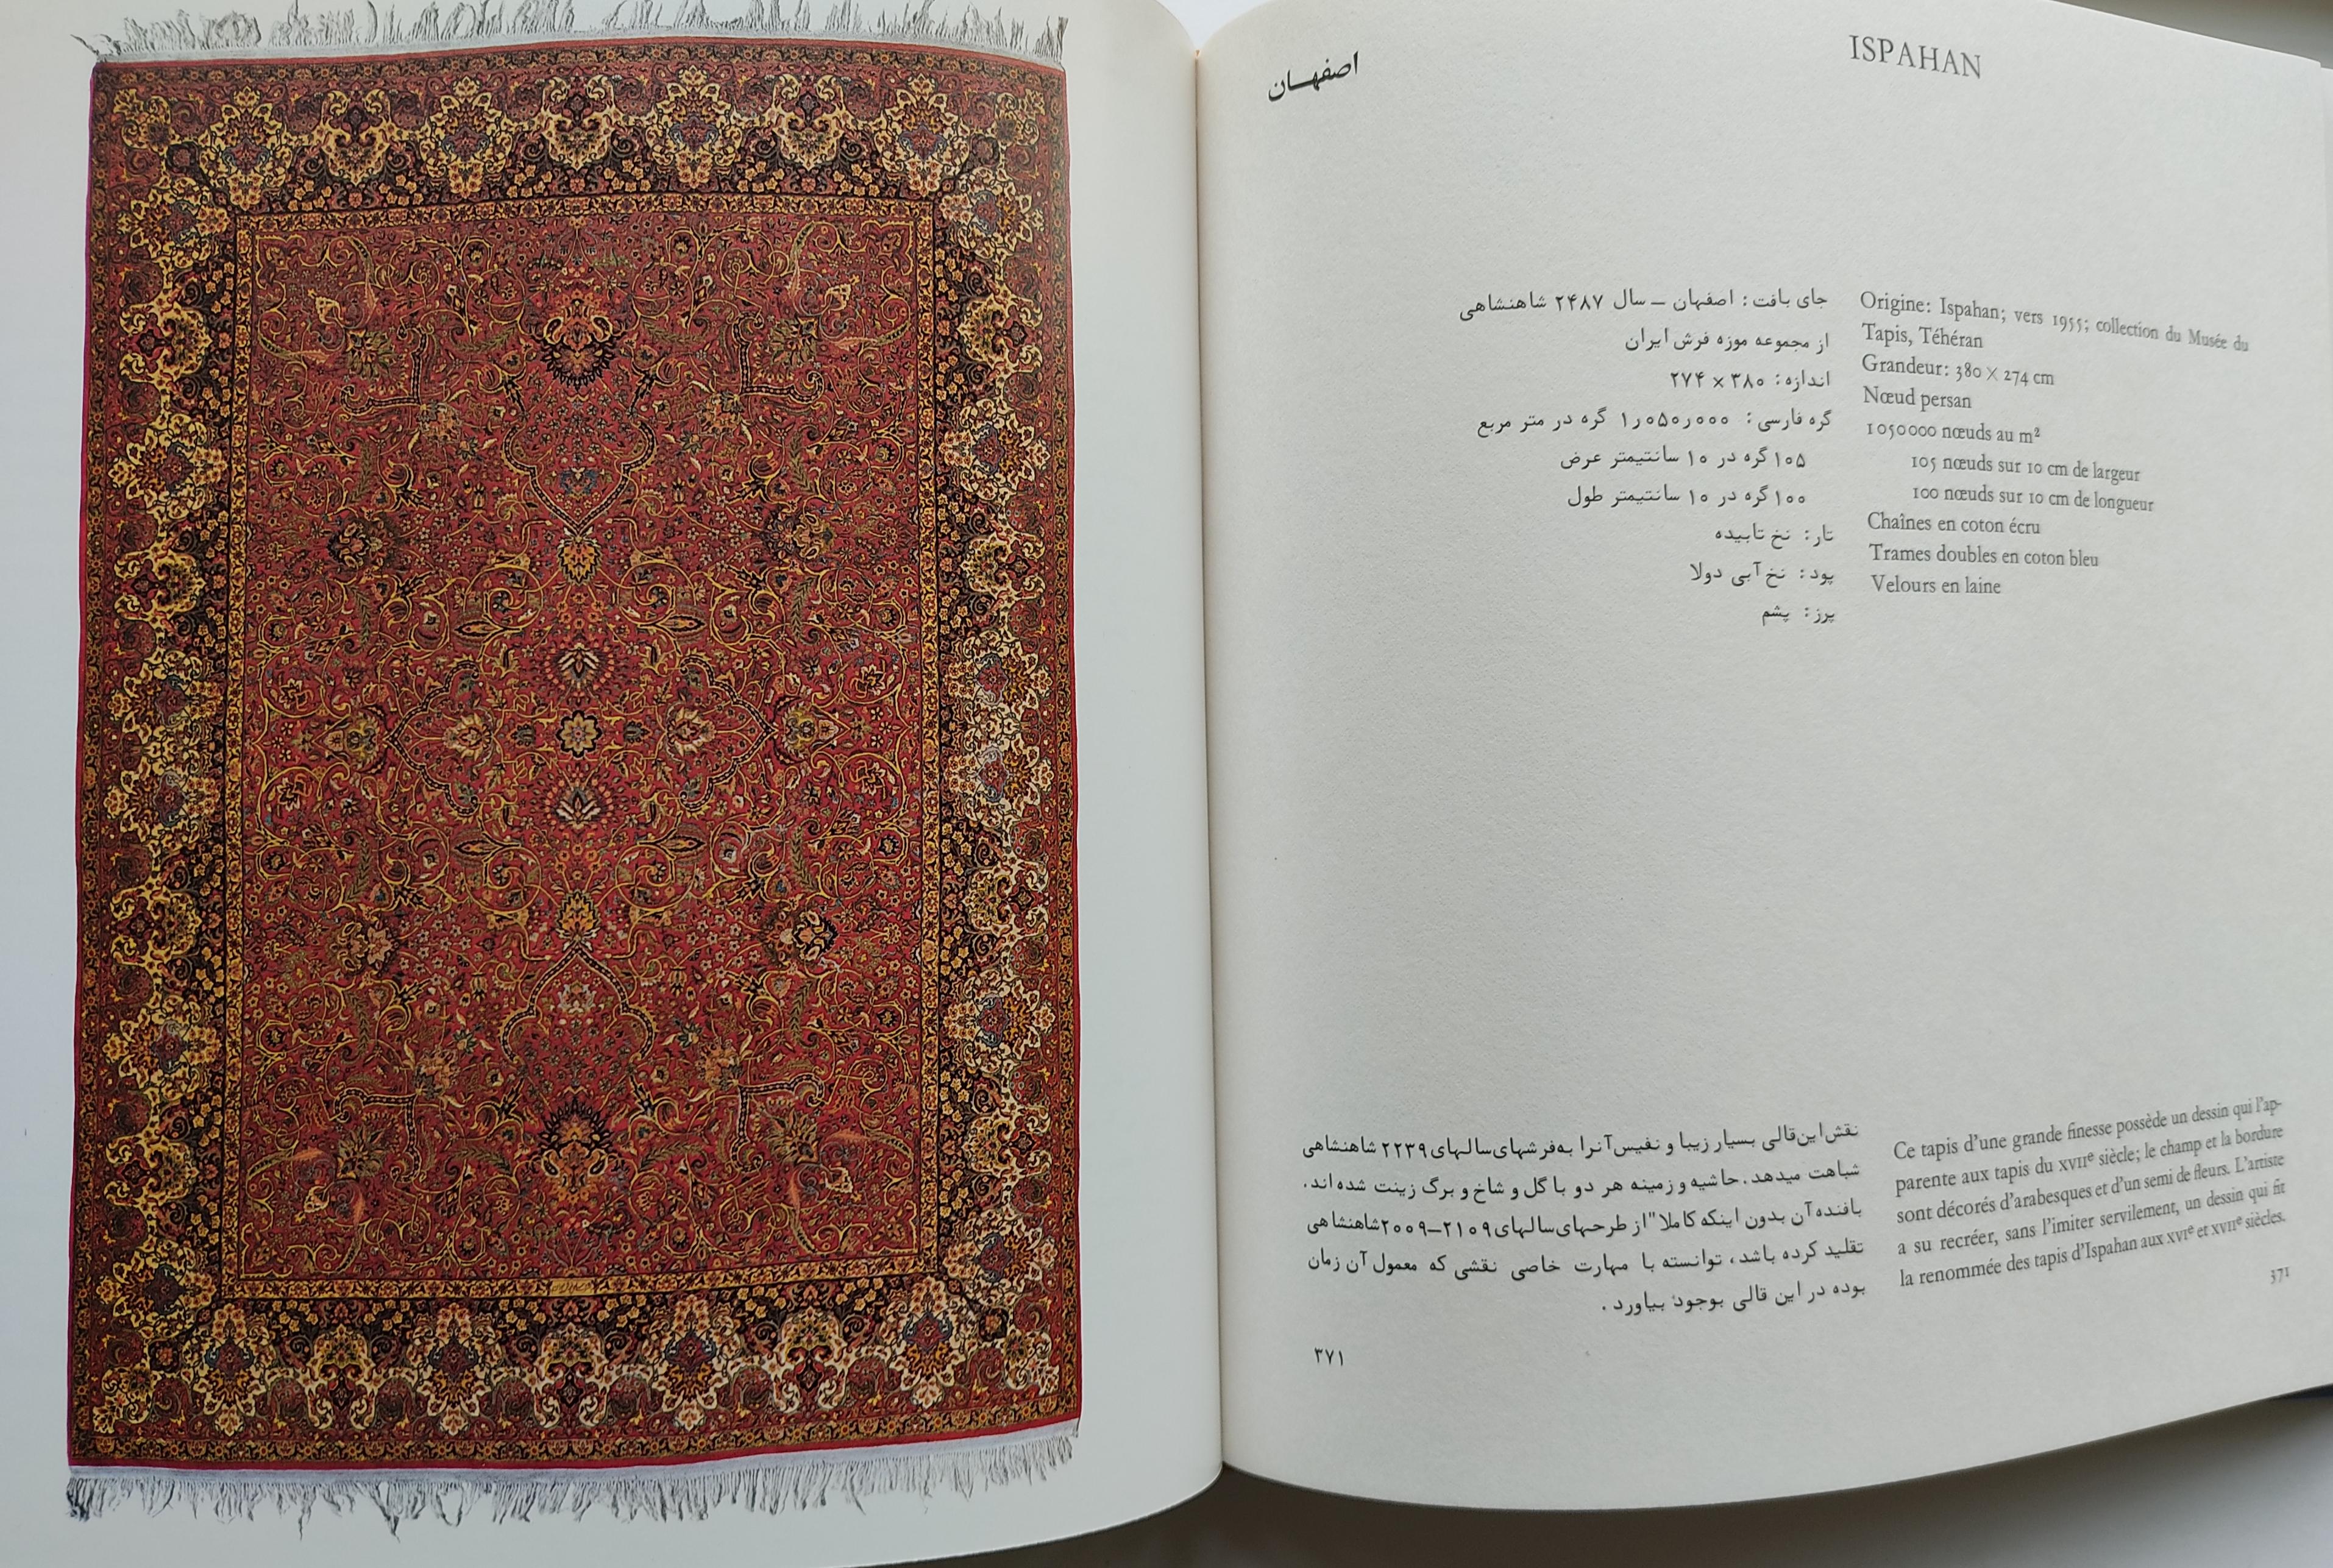 اصفهـان
ISPAHAN
جای بافت: اصفهان – سال ۲۴۸۷ شاهنشاهی
از مجموعه موزه فرش ایران
اندازه: ۳۸۰ × ۲۷۴
گره فارسی: ۱٫۰۵۰٫۰۰۰ گره در متر مربع
۱۰۵ گره در ۱۰ سانتیمتر عرض
۱۰۰ گره در ۱۰ سانتیمتر طول
تار: نخ تابیده
پود: نخ آبی دولا
پرز: پشم
Origine: Ispahan; vers 1955; collection du Musée du
Tapis, Téhéran
Grandeur: 380 × 274 cm
Nœud persan
1 050 000 nœuds au m²
105 nœuds sur 10 cm de largeur
100 nœuds sur 10 cm de longueur
Chaînes en coton écru
Trames doubles en coton bleu
Velours en laine
نقش این قالی بسیار زیبا و نفیس آنرا به فرشهای سالهای ۲۲۳۹ شاهنشاهی
شباهت میدهد. حاشیه و زمینه هر دو با گل و شاخ و برگ زینت شده اند.
بافنده آن بدون اینکه کاملا" از طرحهای سالهای ۲۱۰۹–۲۰۰۹ شاهنشاهی
تقلید کرده باشد، توانسته با مهارت خاصی نقشی که معمول آن زمان
بوده در این قالی بوجود بیاورد.
۳۷۱
Ce tapis d'une grande finesse possède un dessin qui l'ap-
parente aux tapis du XVIIe siècle; le champ et la bordure
sont décorés d'arabesques et d'un semi de fleurs. L'artiste
a su recréer, sans l'imiter servilement, un dessin qui fit
la renommée des tapis d'Ispahan aux XVIe et XVIIe siècles.
371